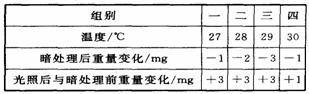 组别 一 二 三 四
温度/℃ 27 28 29 30
暗处理后重量变化/mg －1 －2 －3 －1
光照后与暗处理前重量变化/mg +3 +3 +3 +1